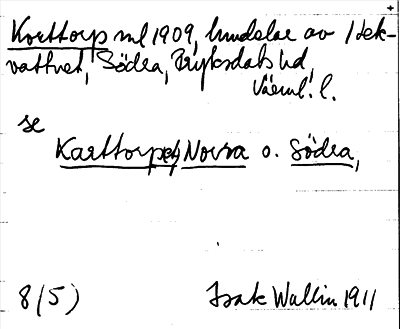 Korttorp ml 1909, hemdelar av Stek-
vattnet, Södra, Fryksdals hd,
Värml. l.
se
Karttorpet, Norra o. Södra,
8 (5) Isak Wallin 1911